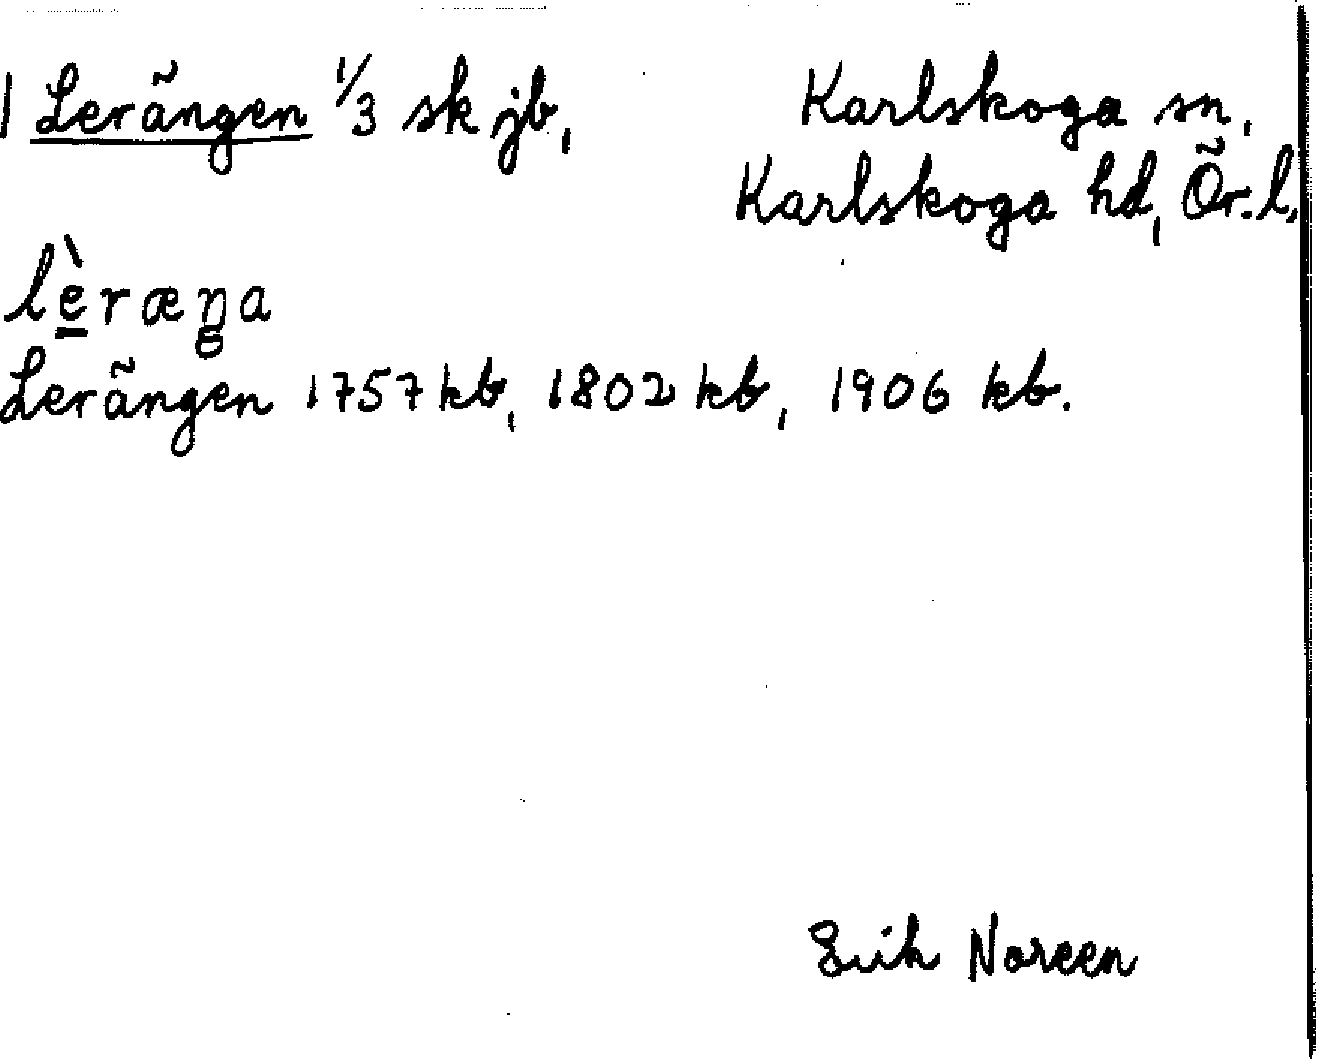 1 Lerängen 1/3 sk jb, Karlskoga sn,
Karlskoga hd, Ör. l.
lèræŋa
Lerängen 1757 kb, 1802 kb, 1906 kb.
Erik Noreen